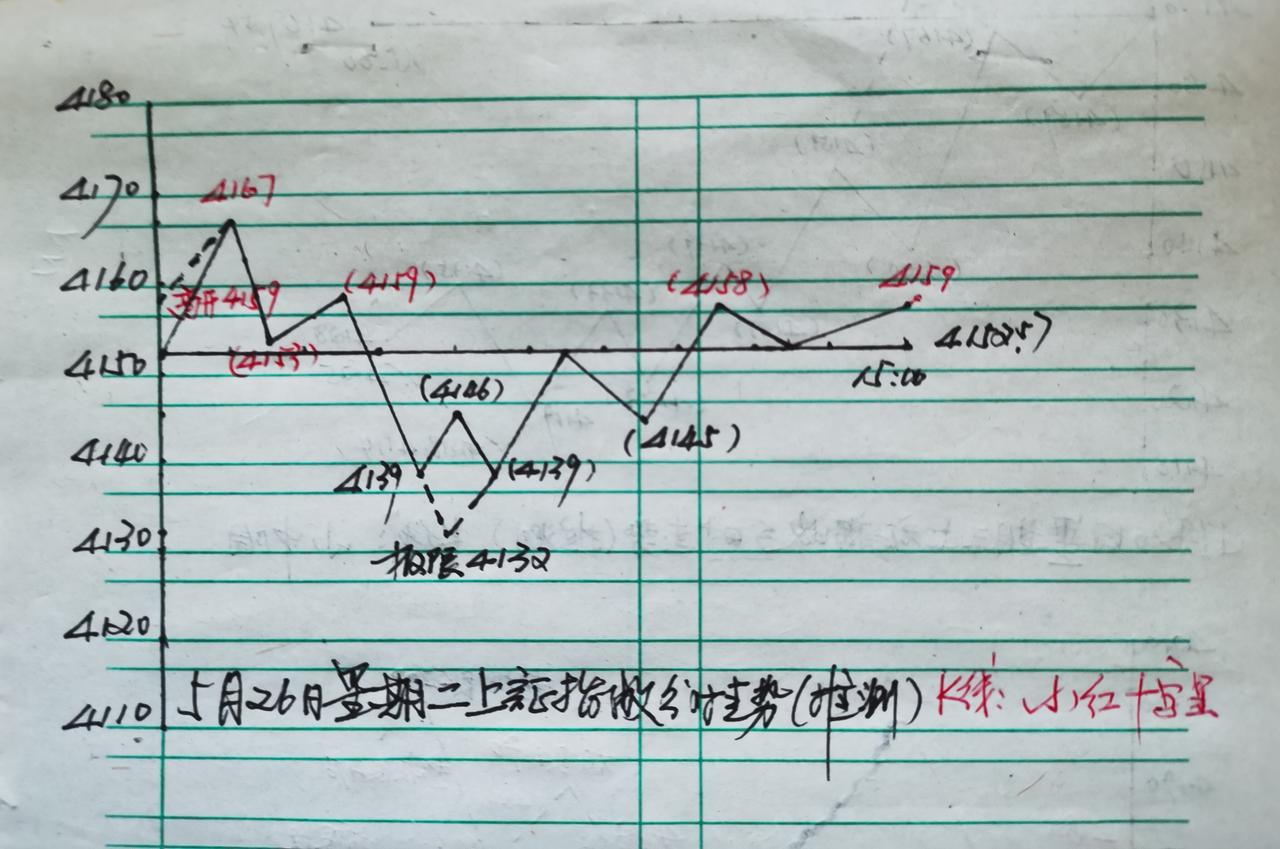 4180
4170
4167
4160
高开4159
(4159)
(4158)
4159
(4153)
4150
15:00
(4146)
(4145)
4140
4139
(4139)
4130
极限4132
4120
4110
5月26日星期二上证指数分时走势(推测) K线:小红十字星